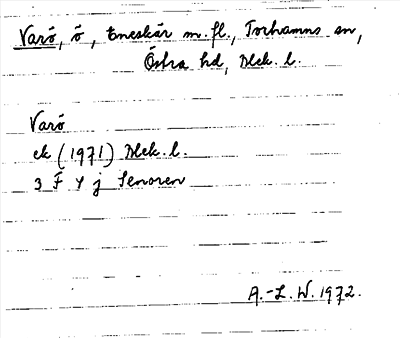 Varö, ö, Eneskär m.fl., Torhamns sn,
Östra hd, Blek. l.
Varö
ek (1971) Blek. l.
3 F 4 j Senoren
A.-L. W. 1972.